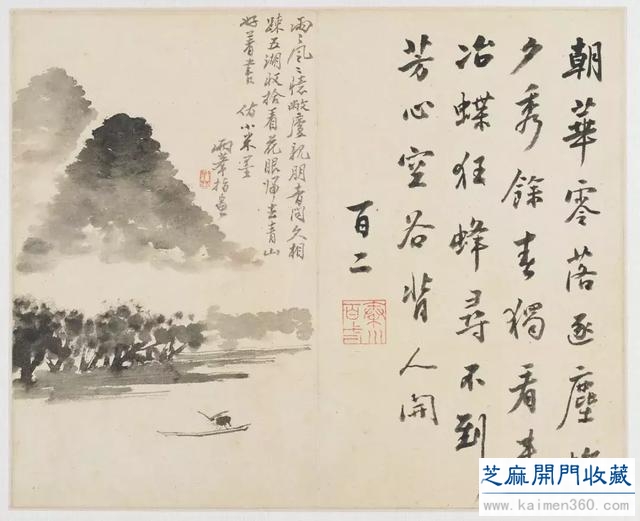 朝華零落逐塵
夕秀餘春獨看
冶蝶狂蜂尋不到
芳心空谷背人開
百二
雨〻風〻憶敝廬親朋音問久相
踈五湖收拾看花眼歸去青山
好著書 仿小米墨
兩峯指畫
芝麻開門收藏
www.kaimen360.com